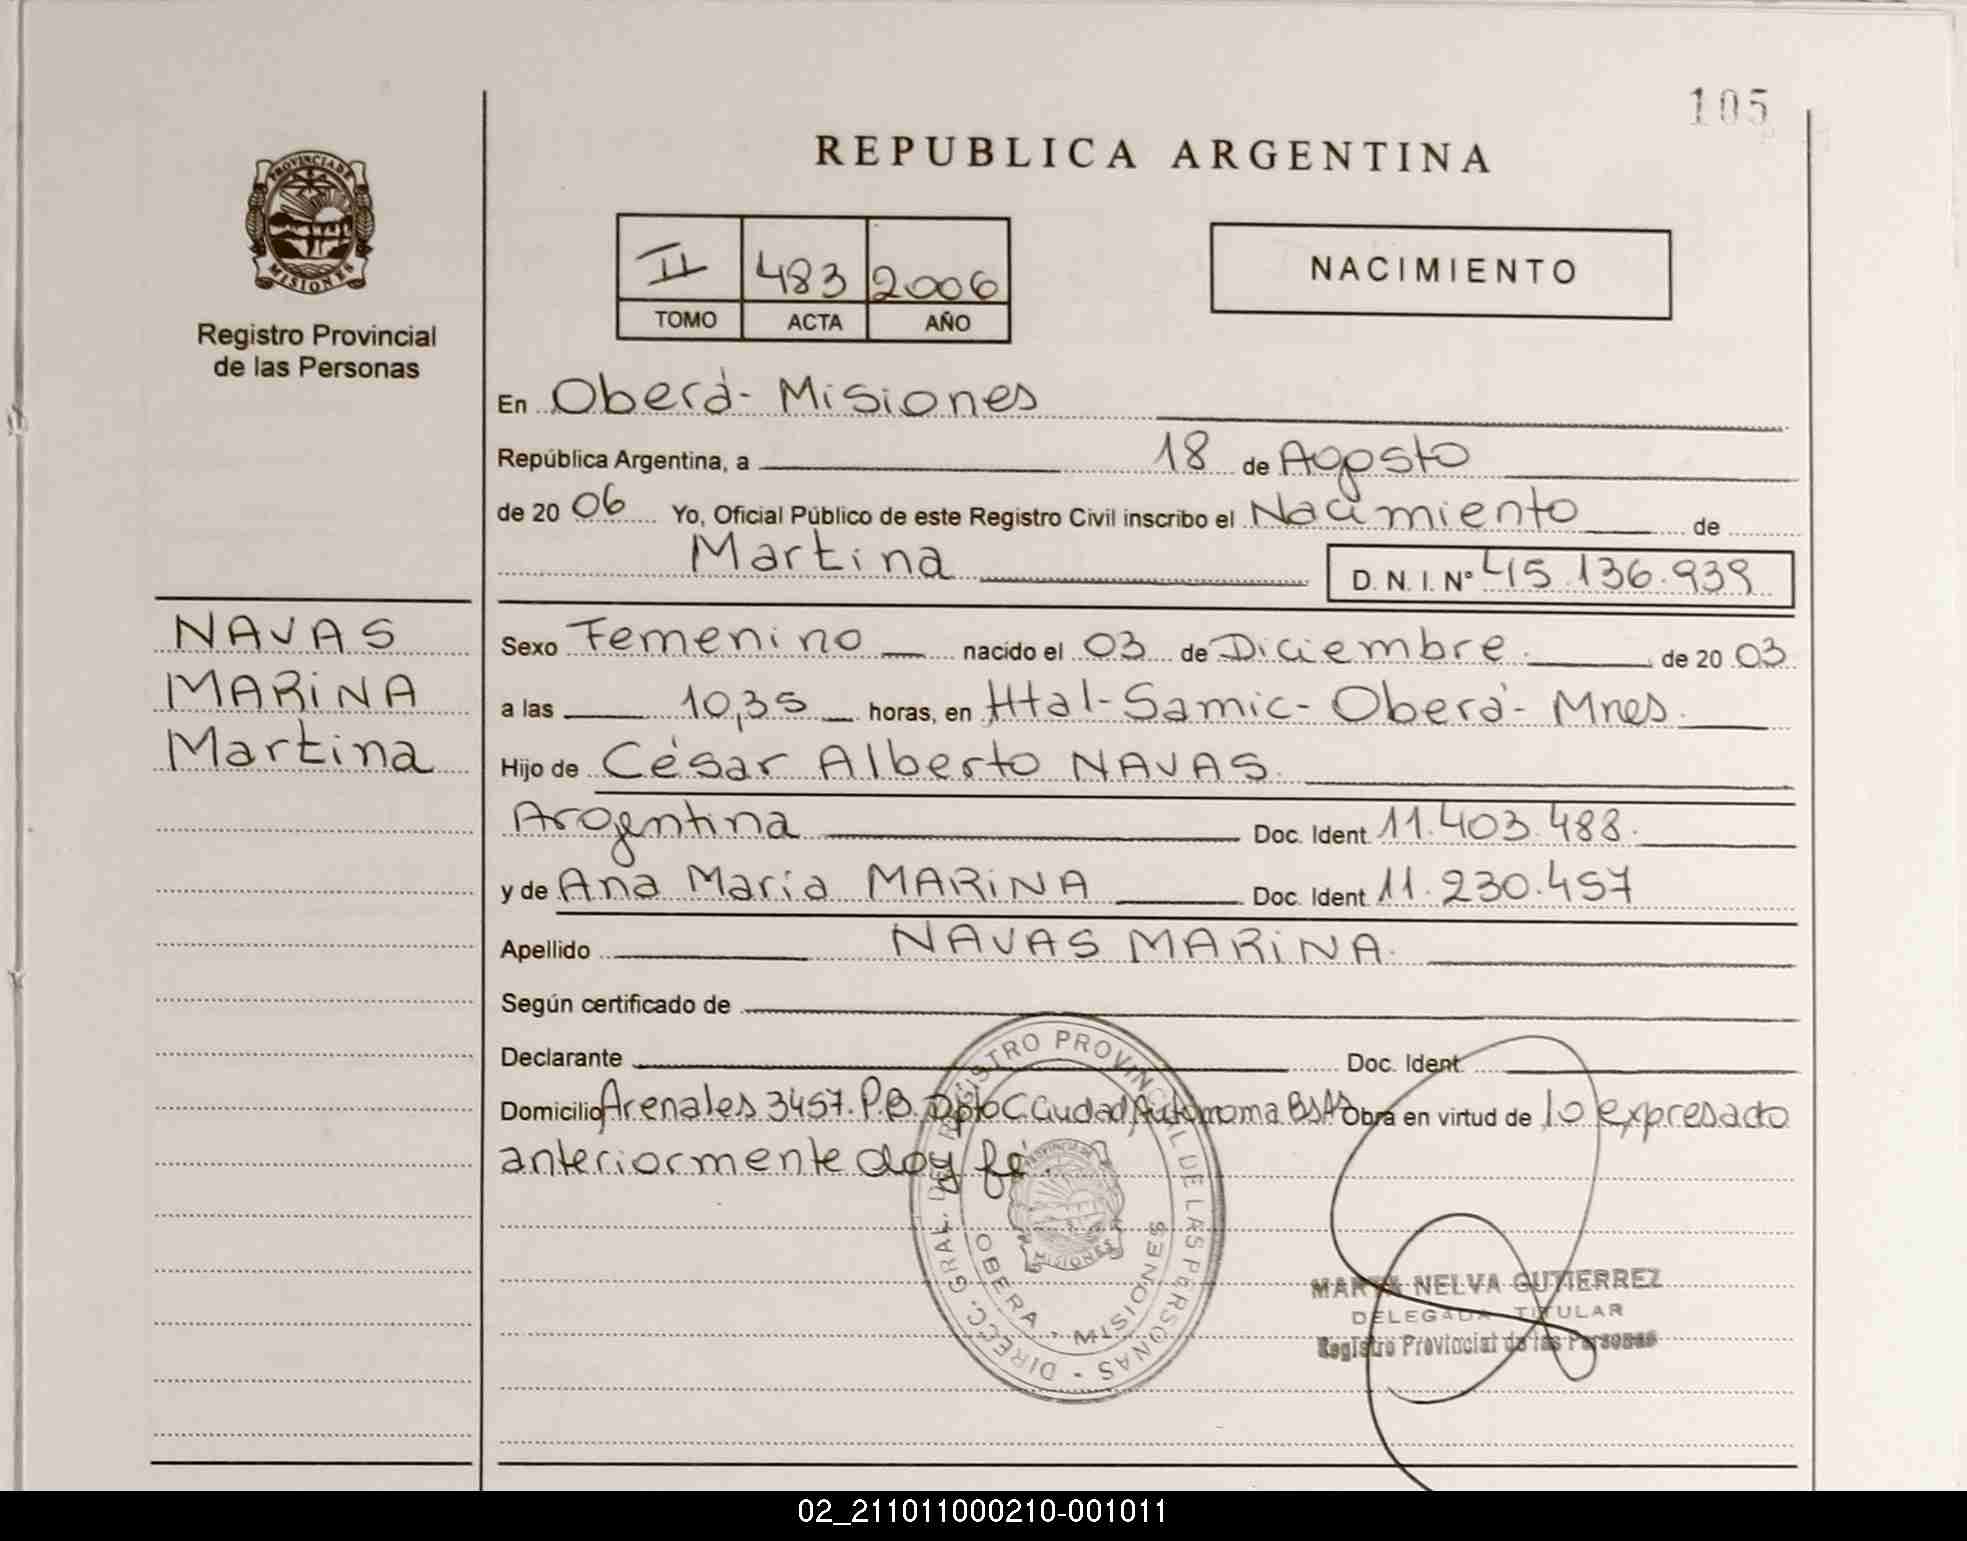 105
REPUBLICA ARGENTINA
PROVINCIA DE
MISIONES
Registro Provincial
de las Personas
II 483 2006
TOMO ACTA AÑO
NACIMIENTO
En Oberá - Misiones
República Argentina, a 18 de Agosto
de 20 06 Yo, Oficial Público de este Registro Civil inscribo el Nacimiento de
Martina D. N. I. Nº 45.136.939
NAVAS
MARINA
Martina
Sexo Femenino nacido el 03 de Diciembre de 20 03
a las 10,35 horas, en Htal - Samic - Oberá - Mnes.
Hijo de César Alberto NAVAS.
Argentina Doc. Ident 11.403.488.
y de Ana María MARINA Doc. Ident 11.230.457
Apellido NAVAS MARINA.
Según certificado de
Declarante Doc. Ident
Domicilio Arenales 3457. P.B. Dpto C Ciudad Autónoma Bs As Obra en virtud de lo expresado
anteriormente doy fé.
DIRECC. GRAL. DE REGISTRO PROVINCIAL DE LAS PERSONAS
OBERA - MISIONES
MISIONES
MARTA NELVA GUTIERREZ
DELEGADA TITULAR
Registro Provincial de las Personas
02_211011000210-001011